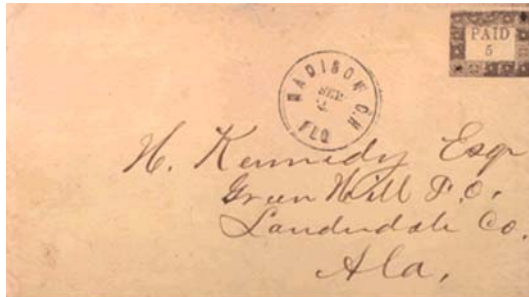 PAID
5
MADISON C.H
FLO
H. Kennedy Esqr
Green Hill P.O.
Lauderdale Co.
Ala.